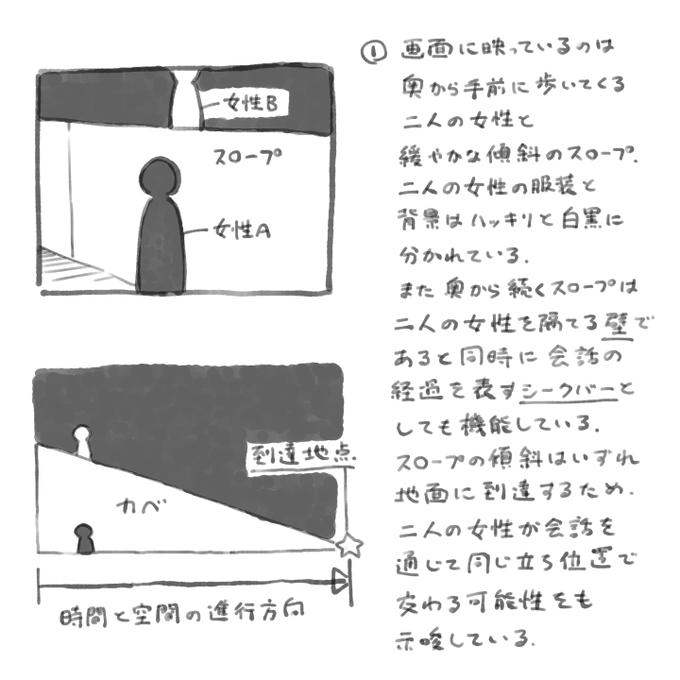 女性B
スロープ
女性A
到達地点
カベ
時間と空間の進行方向
① 画面に映っているのは
奥から手前に歩いてくる
二人の女性と
緩やかな傾斜のスロープ.
二人の女性の服装と
背景はハッキリと白黒に
分かれている.
また奥から続くスロープは
二人の女性を隔てる壁で
あると同時に会話の
経過を表すシークバーと
しても機能している.
スロープの傾斜はいずれ
地面に到達するため.
二人の女性が会話を
通じて同じ立ち位置で
交わる可能性をも
示唆している.